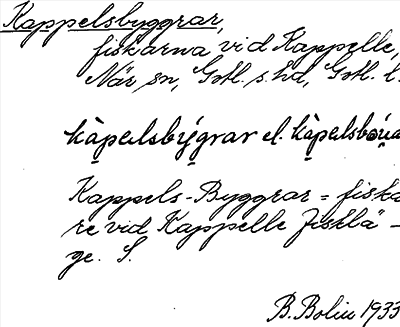 Kappelsbyggrar,
fiskarna vid Kappelle,
När sn, Gotl. s. hd, Gotl. l.
kàpęlsbý̨grar el. kàpęlsbǫ́
Kappels-Byggrar = fiska
re vid Kappelle fisklä-
ge. S.
B. Bolin 1933